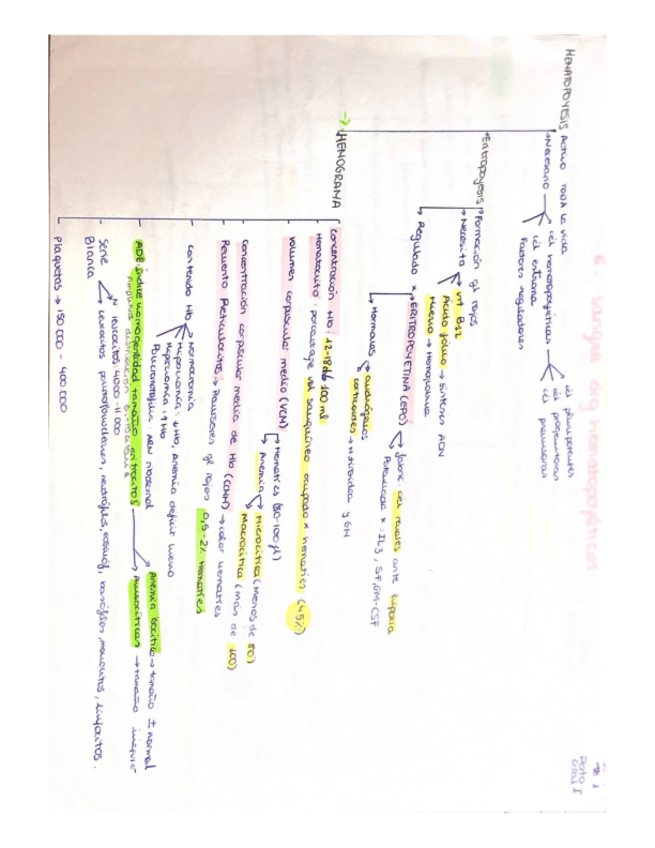 6. sangre org hematopoyéticos
Pato Gral I
HEMATOPOYESIS Activo TODA la vida
Necesario
cél hematopoyéticas
cél pluripotentes
cél progenitoras
cél precursoras
cél estroma
Factores reguladores
Eritropoyesis
Formación gl rojos
Necesita
vit B12
Ácido fólico → síntesis ADN
Hierro → Hemoglobina
Regulado x
ERITROPOYETINA (EPO)
fabric cél renales ante hipoxia
Potenciada x : IL3, SF, GM-CSF
Hormonas
andrógenos
corticoides → H tiroidea y GH
→ HEMOGRAMA
Concentración Hb: 12-18 100 ml
Hematocrito: porcentaje vol sanguíneo ocupado x hematíes (45%)
Volumen corpuscular medio (VCM)
Hematíes (80-100 fl)
Anemia
Microcítica (menos de 80)
Macrocítica (más de 100)
Concentración corpuscular media de Hb (CCMH) → color hematíes
Recuento Reticulocitos → Precursores gl rojos 0,5-2% hematíes
Contenido Hb
Normocromía
Hipocromía: ↓ Hb, Anemia déficit hierro
Hipercromía: ↑ Hb
Policromatofilia: ARN ribosomal
ADE índice homogeneidad tamaño eritrocitos
Amplitud distribución eritrocitaria
→ tamaño ± normal
Anisocíticas → tamaño
Serie Blanca
Nº leucocitos: 4000-11 000
Leucocitos polimorfonucleares, neutrófilos, eosinóf, basófilos, monocitos, linfocitos.
Plaquetas → 150 000 - 400 000